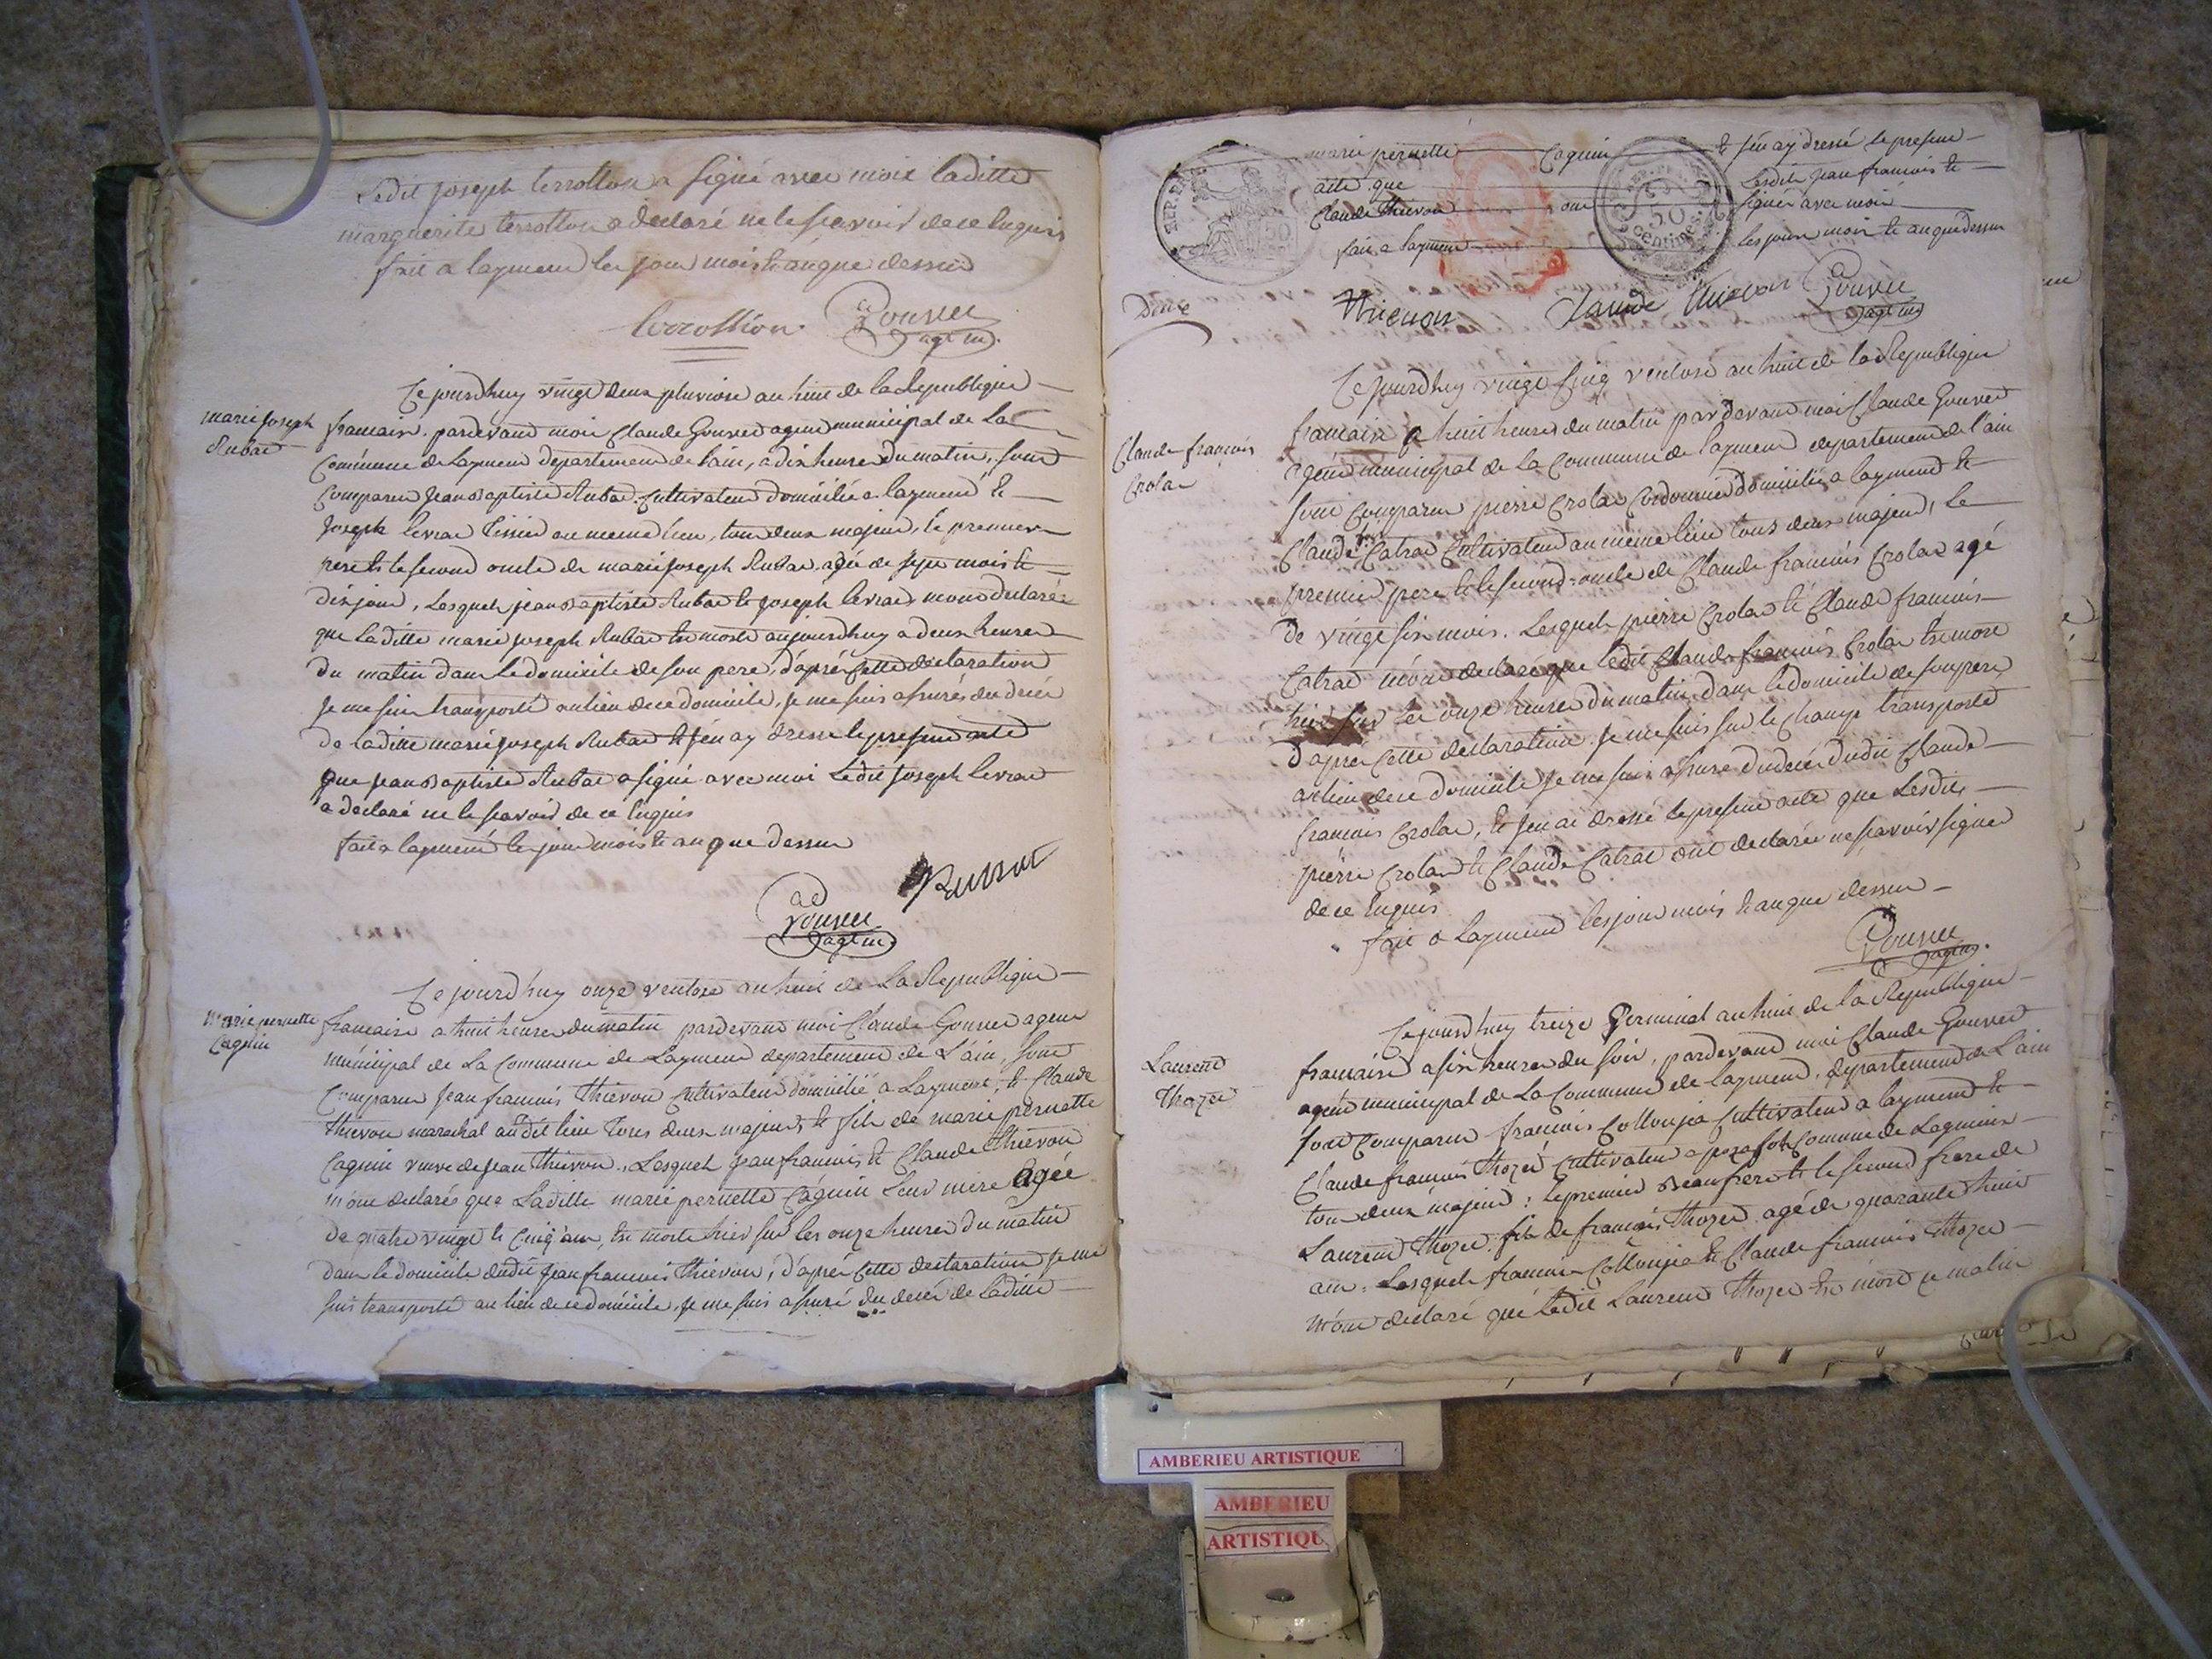 Ledit joseph terrollion a signé avec moi laditte
marguerite terrollion a declaré ne le scavoir de ce enquis
fait a laymend les jour mois et an que dessus
terrollion Gouvee
agt m.
Ce jourdhuy vingt deux pluviose an huit de la Republique
marie joseph
Rubat
francaise. pardevant moi Claude Gouvee agent municipal de La
Commune de Laymend departement de l'ain, a dix heures du matin, sont
Comparus Jean Baptiste Rubat Cultivateur domicilié a laymend et
Joseph levrat tissier au meme lieu, tous deux majeurs, le premier
pere et le second oncle de marie joseph Rubat agée de sept mois et
dix jour, Lesquels jean Baptiste Rubat et joseph levrat mont declarés
que laditte marie joseph Rubat est morte aujourdhuy a deux heures
du matin dans le domicile de son pere, d'après cette declaration
je me suis transporté au lieu de ce domicile, je me suis assurés du décès
de laditte marie joseph Rubat et j'en ay dressé le present acte
que jean Baptiste Rubat a signé avec moi Ledit joseph levrat
a declaré ne le scavoir de ce enquis
fait a laymend les jour mois et an que dessus
Gouvee
agt m.
Ce jourd'huy onze ventose an huit de La Republique
marie pernette
Caguin
francaise a huit heures du matin pardevant moi Claude Gouvee agent
municipal de La Commune de Laymend departement de L'ain, sont
Comparus jean francois thievon Cultivateur domicilié a Laymend, et Claude
thievon marechal audit lieu tous deux majeurs, et fils de marie pernette
Caguin veuve de jean thievon, Lesquels jean francois et Claude thievon
m'ont declarés que Laditte marie pernette Caguin Leur mere agée
de quatre vingt et cinq ans, est morte hier sur les onze heures du matin
dans le domicile dudit jean francois thievon, d'après cette declaration je me
suis transporté au lieu de ce domicile, je me suis assuré du décés de laditte
marie pernette Caguin et j'en ay dressé le present
acte que Lesdits jean francois et
Claude thievon ont signés avec moi
fait a laymend les jour mois et an que dessus
REP. FRA.
50
centimes.
thievon Claude thievon Gouvee
agt m
Ce jourdhuy vingt cinq ventose an huit de la Republique
Claude françois
Crolas
francaise a huit heures du matin pardevant moi Claude Gouvee
agent municipal de La Commune de laymend departement de l'ain
sont Comparus pierre Crolas Cordonnier domicilié a laymend et
Claude Catrat Cultivateur au même lieu tous deux majeurs, le
premier pere et le second oncle de Claude francois Crolas agé
de vingt six mois. Lesquels pierre Crolas et Claude francois
Catrat m'ont declaré que ledit Claude francois Crolas est mort
hier sur les onze heures du matin dans le domicile de son pere,
d'après cette declaration je me suis sur le champ transporté
au lieu de ce domicile je me suis assuré du décès dudit Claude
francois Crolas, et j'en ai dressé le present acte que Lesdits
pierre Crolas et Claude Catrat ont declarés ne scavoir signer
de ce enquis
fait a Laymend les jour mois et an que dessus
Gouvee
agt m.
Ce jourdhuy treize Germinal an huit de la Republique
Laurend
Thozet
francaise a six heures du soir, pardevant moi Claude Gouvee
agent municipal de La Commune de laymend, departement de L'ain
sont Comparus francois Collonjeo Cultivateur a laymend et
Claude francois thozet Cultivateur a commune de Lagnieu
tous deux majeurs; le premier beau frere et le second frere de
Laurend thozet fils de francois thozet agé de quarante huit
ans. Lesquels francois Collonjeo et Claude francois thozet
m'ont declaré que ledit Laurend thozet est mort ce matin
AMBERIEU ARTISTIQUE
AMBERIEU
ARTISTIQU